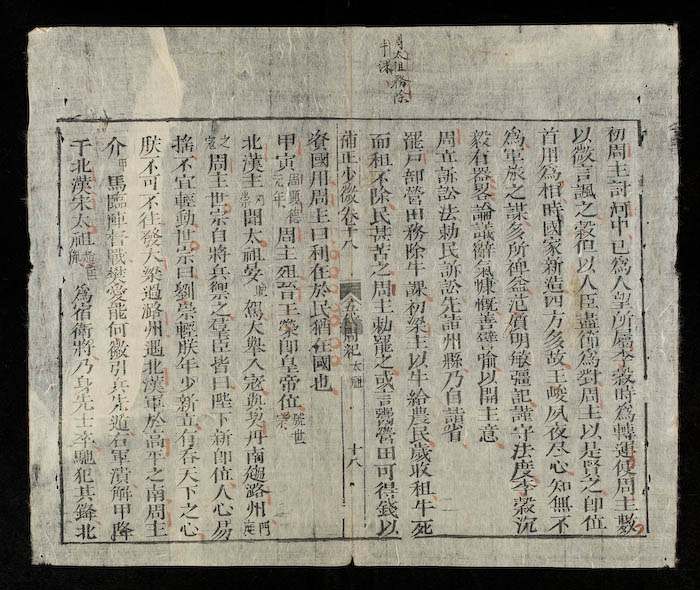 周太祖務除
牛課
初周主討河中已爲人望所屬李穀時爲轉運使周主數
以微言諷之穀但以人臣盡節爲對周主以是賢之即位
首用爲相時國家新造四方多故王峻夙夜尽心知無不
爲軍旅之謀多所裨益范質明敏彊記謹守法度李穀沉
毅有器畧論議辭氣慷慨善譬喻以開主意
周立訴訟法勅民訴訟先詣州縣乃自詣省
罷戸部營田務除牛課初梁主以牛給農民歲收租牛死
而租不除民甚苦之周主勅罷之或言營田可得錢以
資國用周主曰利在於民猶在國也
補正少微卷十八
五代周紀
太祖
十八
甲寅周顯德元年周主殂晋王榮即皇帝位號世宗
北漢主劉崇聞太祖晏駕大舉入寇與契丹南趨潞州
之周主世宗自將兵禦之羣臣皆曰陛下新即位人心易
搖不宜輕動世宗曰劉崇輕朕年少新立有吞天下之心
朕不可不往發大梁過潞州遇北漢軍於高平之南周主
介甲馬臨陣督戰樊愛能何徽引兵先遁右軍潰解甲降
于北漢宋太祖趙匡胤爲宿衛將乃身先士卒馳犯其鋒北